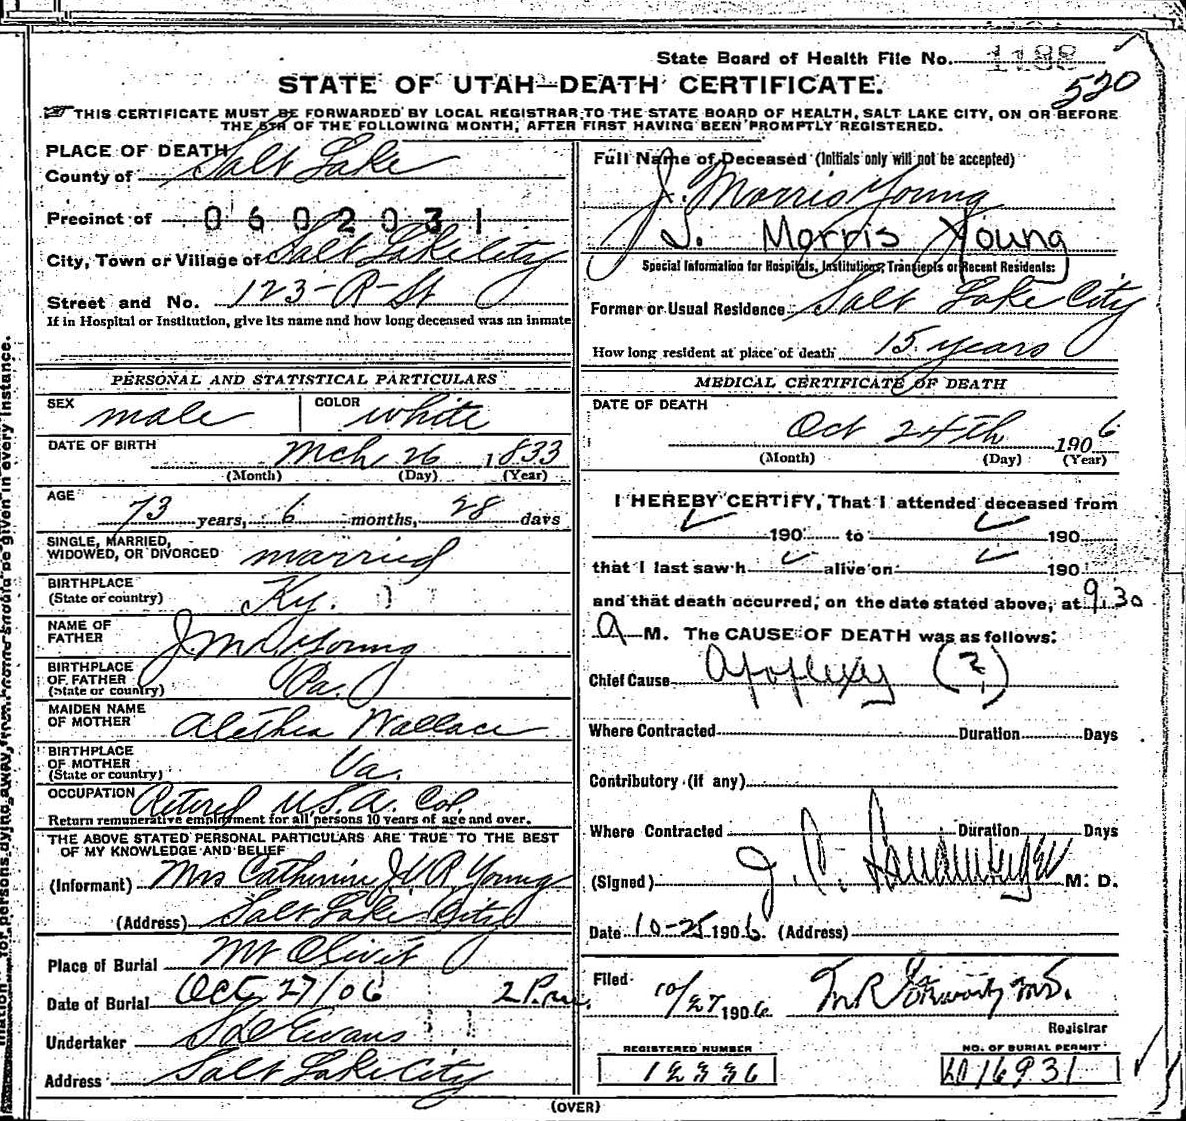 State Board of Health File No. 1188
520
STATE OF UTAH—DEATH CERTIFICATE.
THIS CERTIFICATE MUST BE FORWARDED BY LOCAL REGISTRAR TO THE STATE BOARD OF HEALTH, SALT LAKE CITY, ON OR BEFORE
THE 5TH OF THE FOLLOWING MONTH, AFTER FIRST HAVING BEEN PROMPTLY REGISTERED.
PLACE OF DEATH
County of Salt Lake
Precinct of 0602031
City, Town or Village of Salt Lake City
Street and No. 123-R-St
If in Hospital or Institution, give its name and how long deceased was an inmate
PERSONAL AND STATISTICAL PARTICULARS
SEX male COLOR white
DATE OF BIRTH Mch 26 1833
(Month) (Day) (Year)
AGE
73 years, 6 months, 28 days
SINGLE, MARRIED,
WIDOWED, OR DIVORCED married
BIRTHPLACE
(State or country) Ky.
NAME OF
FATHER Young
BIRTHPLACE
OF FATHER
(State or country) Pa.
MAIDEN NAME
OF MOTHER Alethea Wallace
BIRTHPLACE
OF MOTHER
(State or country) Va.
OCCUPATION Retired U.S.A. Col.
Return remunerative employment for all persons 10 years of age and over.
THE ABOVE STATED PERSONAL PARTICULARS ARE TRUE TO THE BEST
OF MY KNOWLEDGE AND BELIEF
(Informant) Mrs Catherine Young
(Address) Salt Lake City
Place of Burial Mt Olivit
Date of Burial Oct 27/06 2 P.m.
Undertaker Evans
Address Salt Lake City
Full Name of Deceased (Initials only will not be accepted)
J. Morris Young
J. Morris Young
Special Information for Hospitals, Institutions, Transients or Recent Residents:
Former or Usual Residence Salt Lake City
How long resident at place of death 15 years
MEDICAL CERTIFICATE OF DEATH
DATE OF DEATH
Oct 24th 1906
(Month) (Day) (Year)
I HEREBY CERTIFY, That I attended deceased from
190 to 190
that I last saw h alive on 190
and that death occurred, on the date stated above, at 9.30
a M. The CAUSE OF DEATH was as follows:
Chief Cause apoplexy (?)
Where Contracted Duration Days
Contributory (if any)
Where Contracted Duration Days
(Signed) M. D.
Date 10-25 1906. (Address)
Filed 10/27 1906
Registrar
REGISTERED NUMBER NO. OF BURIAL PERMIT
12336 16931
(OVER)